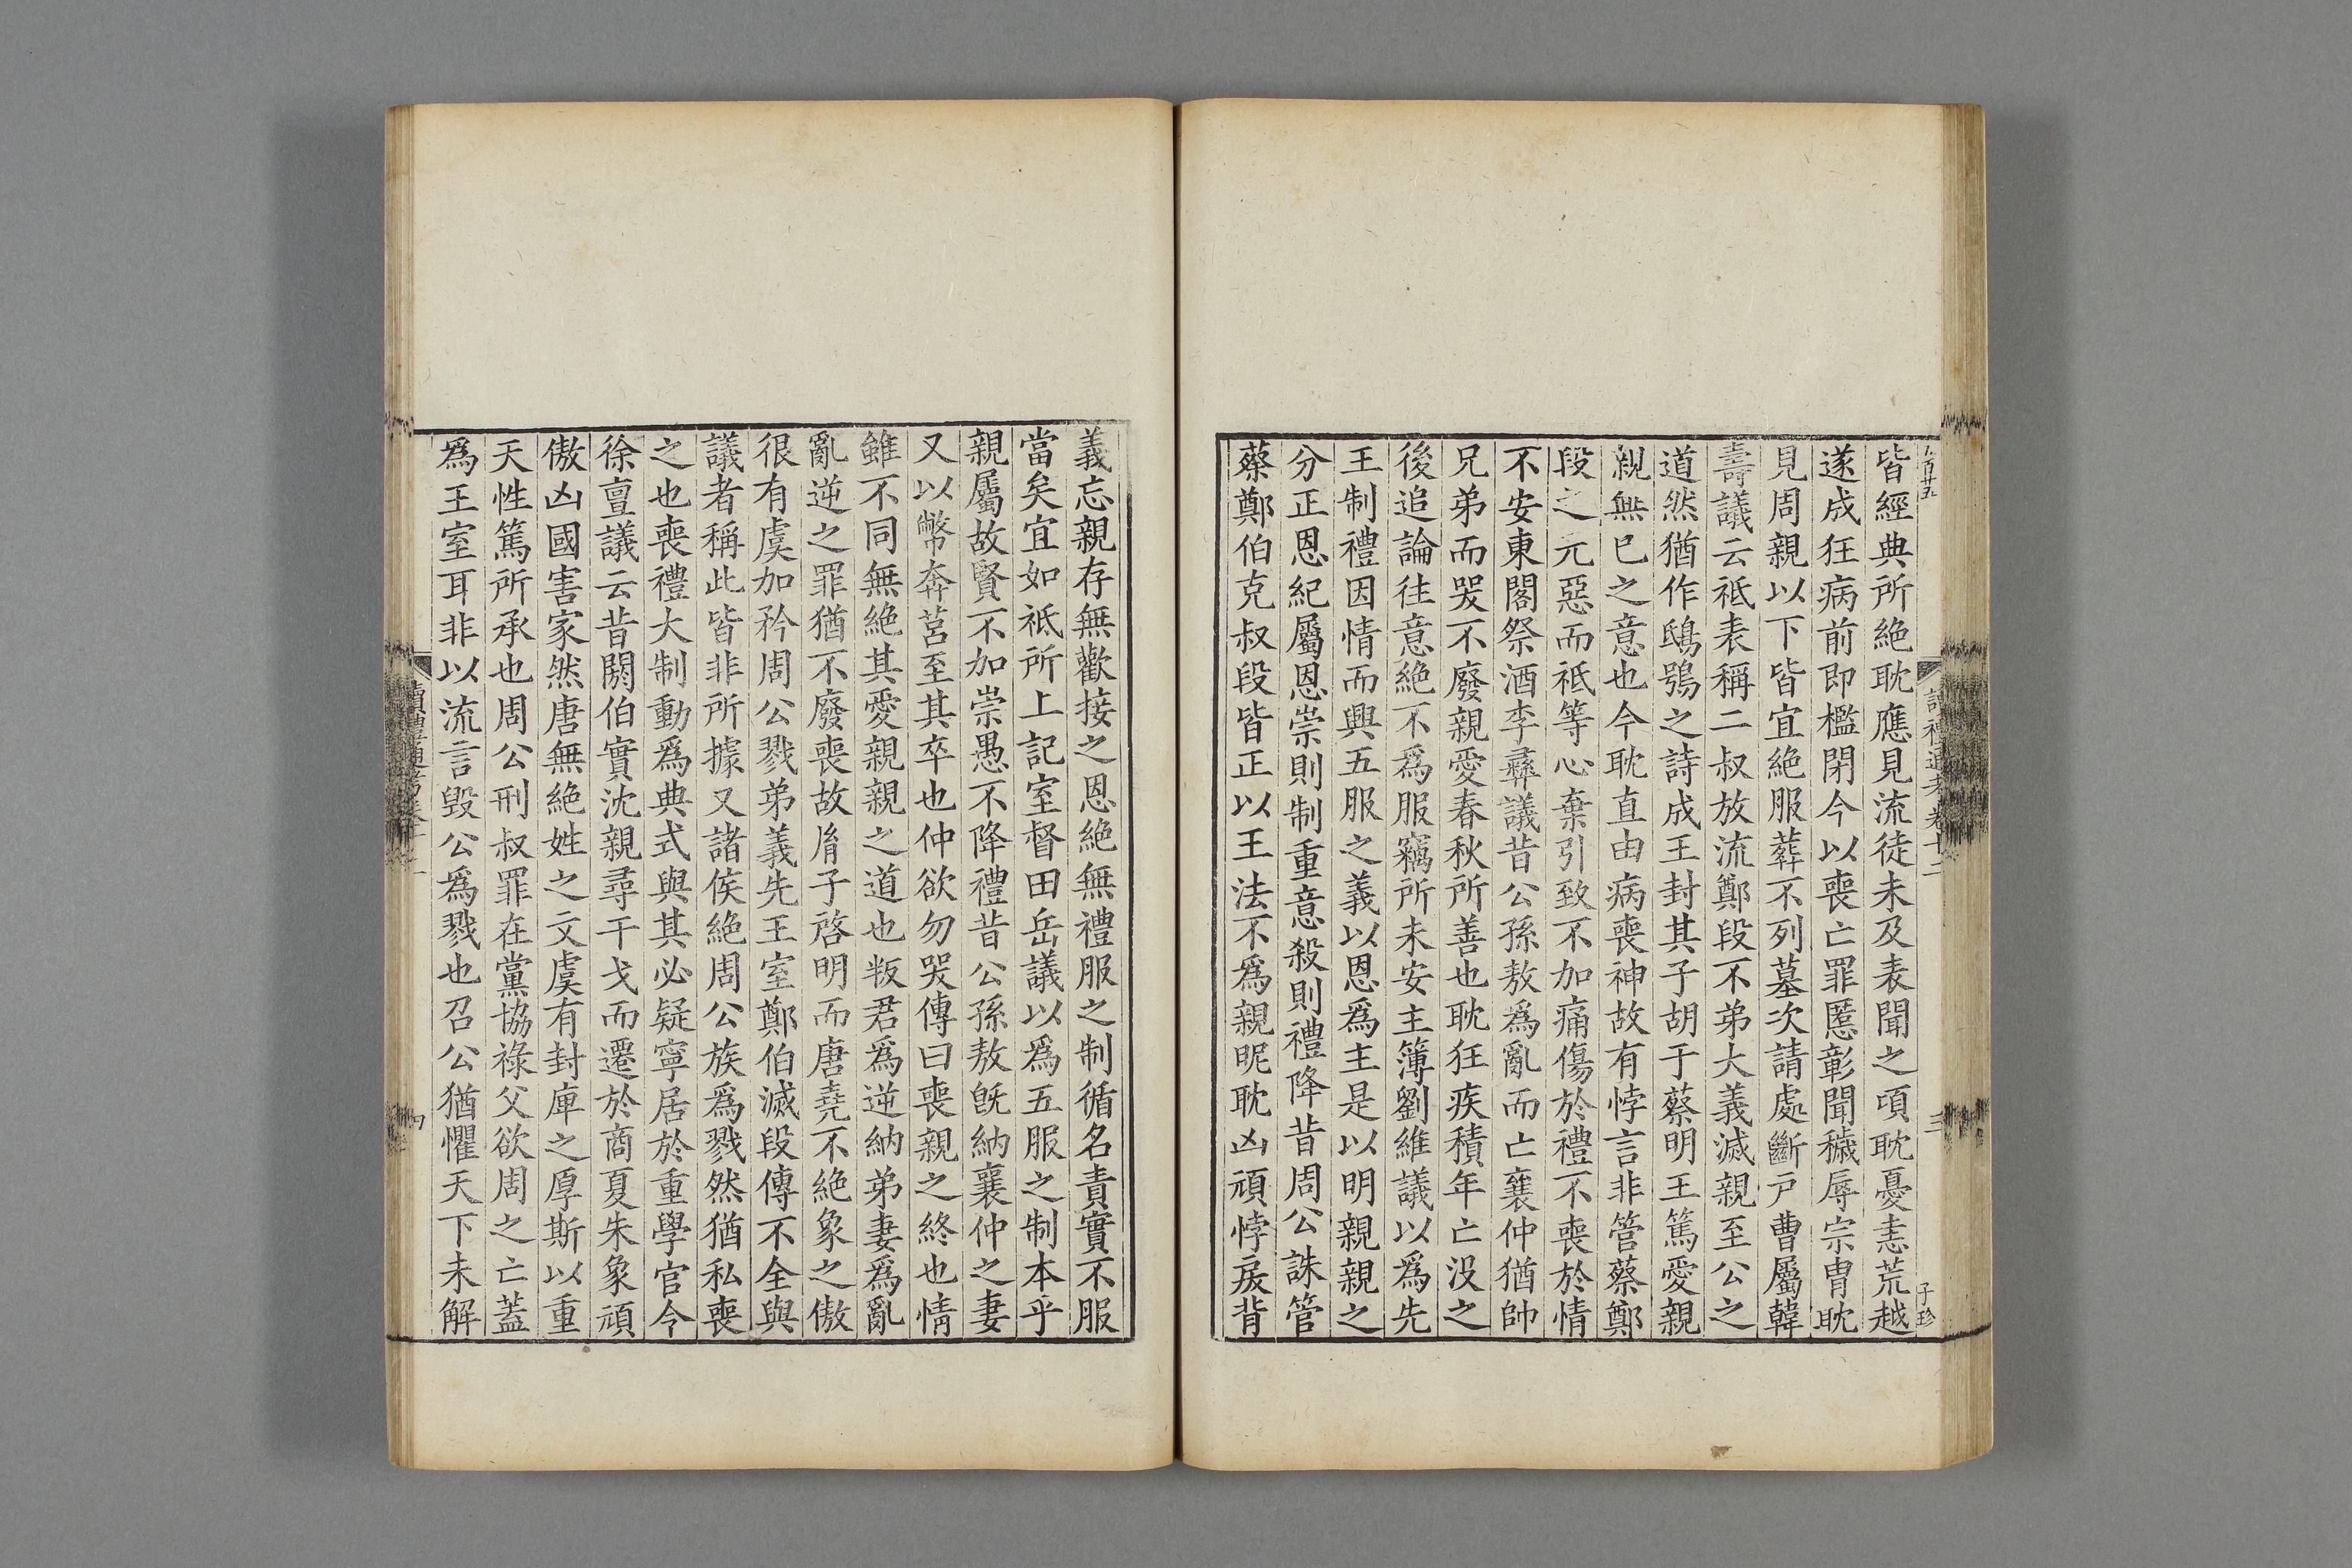 皆經典所絶耽應見流徒未及表聞之頃耽憂恚荒越
遂成狂病前即檻閉今以喪亡罪慝彰聞穢辱宗冑耽
見周親以下皆宜絶服葬不列墓次請處斷戸曹屬韓
壽議云祗表稱二叔放流鄭段不弟大義滅親至公之
道然猶作鴟鴞之詩成王封其子胡于蔡明王篤愛親
親無已之意也今耽直由病喪神故有悖言非管蔡鄭
段之元惡而祗等心棄引致不加痛傷於禮不喪於情
不安東閣祭酒李彞議昔公孫敖爲亂而亡襄仲猶帥
兄弟而哭不廢親愛春秋所善也耽狂疾積年亡没之
後追論往意絶不爲服竊所未安主簿劉維議以爲先
王制禮因情而興五服之義以恩爲主是以明親親之
分正恩紀屬恩崇則制重意殺則禮降昔周公誅管
蔡鄭伯克叔段皆正以王法不爲親昵耽凶頑悖戾背
義忘親存無歡接之恩絶無禮服之制循名責實不服
當矣宜如祗所上記室督田岳議以爲五服之制本乎
親屬故賢不加崇愚不降禮昔公孫敖旣納襄仲之妻
又以幣奔莒至其卒也仲欲勿哭傳曰喪親之終也情
雖不同無絶其愛親親之道也叛君爲逆納弟妻爲亂
亂逆之罪猶不廢喪故胤子啓明而唐堯不絶象之傲
很有虞加矜周公戮弟義先王室鄭伯滅段傳不全與
議者稱此皆非所據又諸侯絶周公族爲戮然猶私喪
之也喪禮大制動爲典式與其必疑寧居於重學官今
徐亶議云昔閼伯實沈親尋干戈而遷於商夏朱象頑
傲凶國害家然唐無絶姓之文虞有封庫之厚斯以重
天性篤所承也周公刑叔罪在黨協祿父欲周之亡蓋
爲王室耳非以流言毁公爲戮也召公猶懼天下未解
讀禮通考卷十二
三
子珍
四